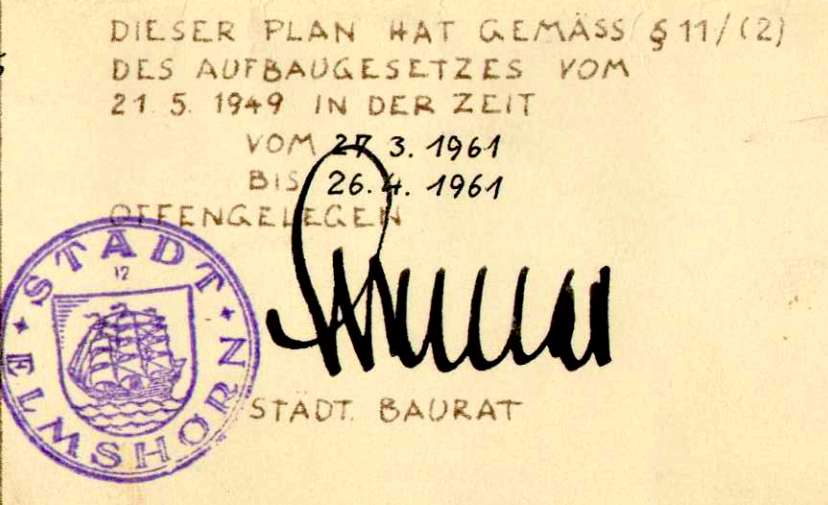 DIESER PLAN HAT GEMÄSS § 11/(2)
DES AUFBAUGESETZES VOM
21. 5. 1949 IN DER ZEIT
VOM 27 3. 1961
BIS 26. 4. 1961
OFFENGELEGEN
STADT
12
ELMSHORN
STÄDT. BAURAT